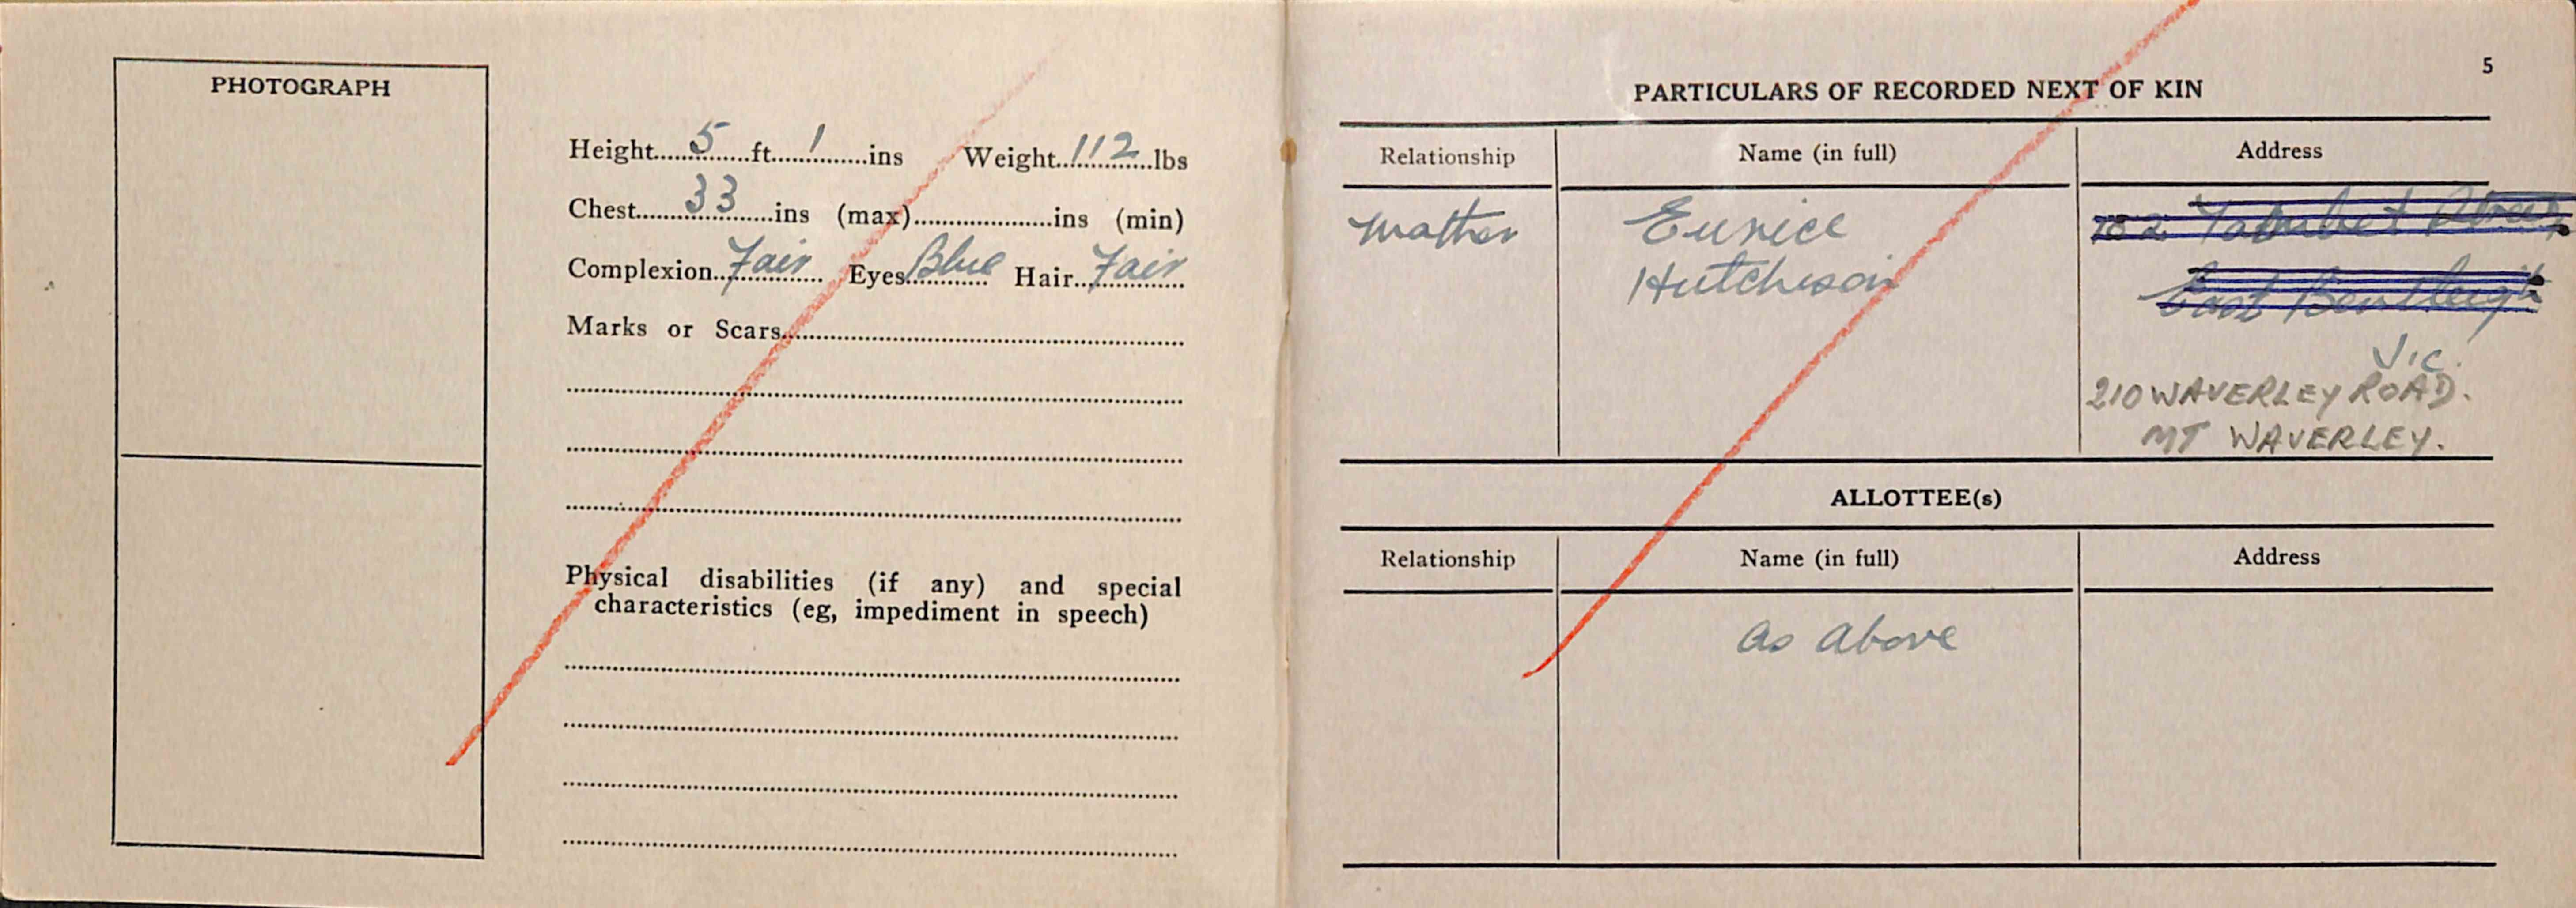 PHOTOGRAPH
Height.....5.....ft.....1.....ins Weight..112..lbs
Chest.....33.....ins (max)..........ins (min)
Complexion..Fair.. Eyes Blue Hair..Fair
Marks or Scars
Physical disabilities (if any) and special
characteristics (eg, impediment in speech)
5
PARTICULARS OF RECORDED NEXT OF KIN
Relationship Name (in full) Address
Mother Eunice
Hutchison East Bentleigh
Vic.
210 WAVERLEY ROAD.
MT WAVERLEY.
ALLOTTEE(s)
Relationship Name (in full) Address
as above